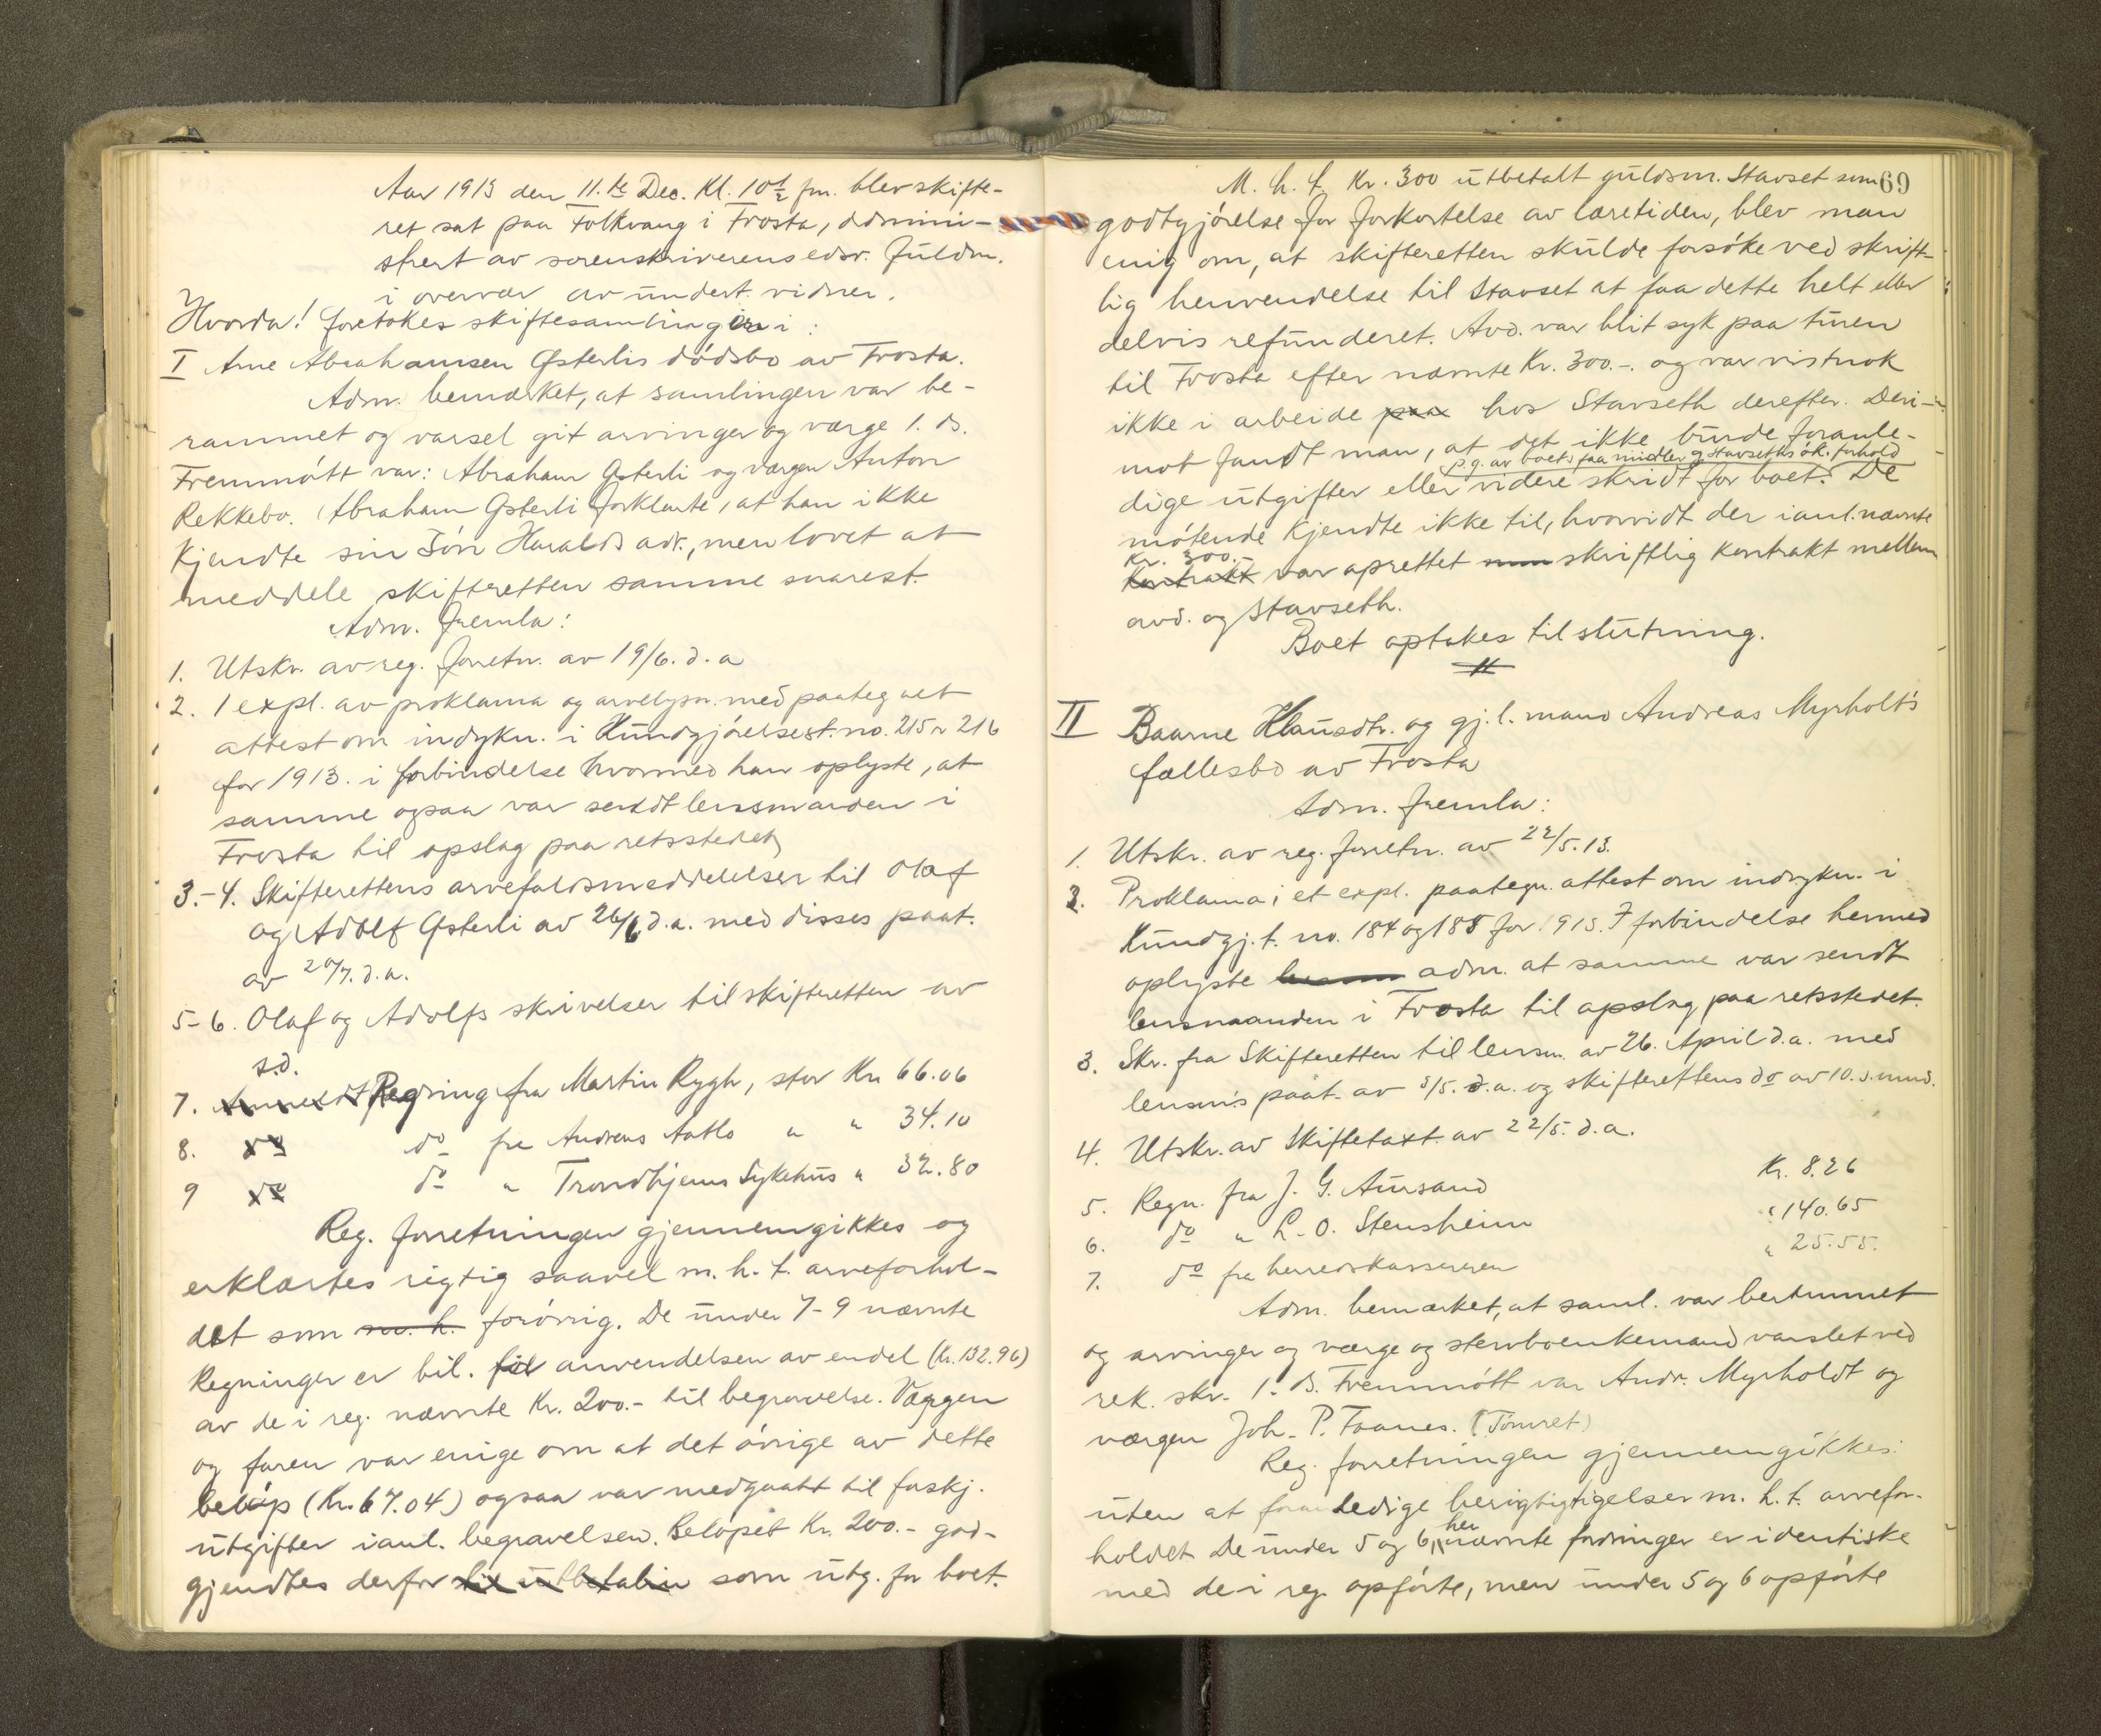 Aar 1913 den 11.te Dec. Kl. 10½ fm. blev skifte-
ret sat paa Folkvang i Frosta, admini-
strert av sorenskriverens edsv. fuldm.
i overvær av undert. vidner.
Hvorda! foretokes skiftesamlinger i:
I Arne Abrahamsen Østerlis dødsbo av Frosta.
Adm. bemærket, at samlingen var be-
rammet og varsel git arvinger og værge 1. ds.
Fremmøtt var: Abraham Østerli og værgen Anton
Rekkebo. Abraham Østerli forklarte, at han ikke
kjendte sin Søn Haralds adr., men lovet at
meddele skifteretten samme snarest.
Adm. fremla:
1. Utskr. av reg. forretn. av 19/6. d. a
2. 1 expl. av proklama og arvelysn. med paategnet
attest om indrykn. i Kundgjørelsest. no. 215 og 216
for 1913. i forbindelse hvormed han oplyste, at
samme ogsaa var sendt lensmanden i
Frosta til opslag paa retsstedet
3.-4. Skifterettens arvefaldsmeddelelser til Olaf
og Adolf Østerli av 26/6 d.a. med disses paat.
av 20/7. d.a.
5-6. Olaf og Adolfs skrivelser til skifteretten av
s.d.
7. Regning fra Martin Rygh, stor Kr. 66.06
8. do do fra Andreas Aatlo " " 34.10
9 do do " Trondhjems Sykehus " 32.80
Reg. forretningen gjennemgikkes og
erklærtes rigtig saavel m. h. t. arveforhol-
det som m. h. forøvrig. De under 7-9 nævnte
Regninger er bil. for anvendelsen av endel (Kr. 132.96)
av de i reg. nævnte Kr. 200.- til begravelse. Værgen
og faren var enige om at det øvrige av dette
beløp (Kr. 67.04) ogsaa var medgaatt til forskj.
utgifter i anl. begravelsen. Beløpet Kr. 200.- god-
gjendtes derfor til utbetalin som utg. for boet.
69
M. h. t. Kr. 300 utbetalt guldsm. Stavset som
godtgjørelse for forkortelse av læretiden, blev man
enig om, at skifteretten skulde forsøke ved skrift-
lig henvendelse til Stavset at faa dette helt eller
delvis refunderet. Avd. var blit syk paa turen
til Frosta efter nævnte Kr. 300.-. og var vistnok
ikke i arbeide paa hos Stavseth derefter. Deri-
mot fandt man, at det ikke burde foranle-
p.g. av boets faa midler og Stavseths øk. forhold
dige utgifter eller videre skridt for boet. De
møtende kjendte ikke til, hvorvidt der i anl. nævnte
Kr. 300.-
Kontrakt var oprettet skriftlig kontrakt mellem
avd. og Stavseth.
Boet optakes til slutning.
II Baarne Klausdtr. og gj. l. mand Andreas Myrholt's
fællesbo av Frosta
Adm. fremla:
1. Utskr. av reg. forretn. av 22/5. 13.
2. Proklama i et expl. paategn. attest om indrykn. i
Kundgj. t. no. 184 og 188 for 1913. I forbindelse hermed
oplyste adm. at samme var sendt
lensmanden i Frosta til opslag paa retsstedet.
3. Skr. fra Skifteretten til lensm. av 26. April d.a. med
lensm's paat. av 5/5. d.a. og skifterettens do av 10. s. mnd.
4. Utskr. av Skiftetaxt. av 22/5. d.a.
5. Regn. fra J. G. Aursand Kr. 8.26
6. do " L. O. Stensheim " 140.65
7. do fra herredskassereren " 25.55.
Adm. bemærket, at saml. var berammet
og arvinger og værge og stervboenkemand varslet ved
rek. skr. 1. ds. Fremmøtt var Andr. Myrholdt og
værgen Joh. P. Faanes.
Reg. forretningen gjennemgikkes
uten at foranledige berigtigtigelser m. h. t. arvefor-
holdet. De under 5 og 6 her nævnte fordringer er identiske
med de i reg. opførte, men under 5 og 6 opførte